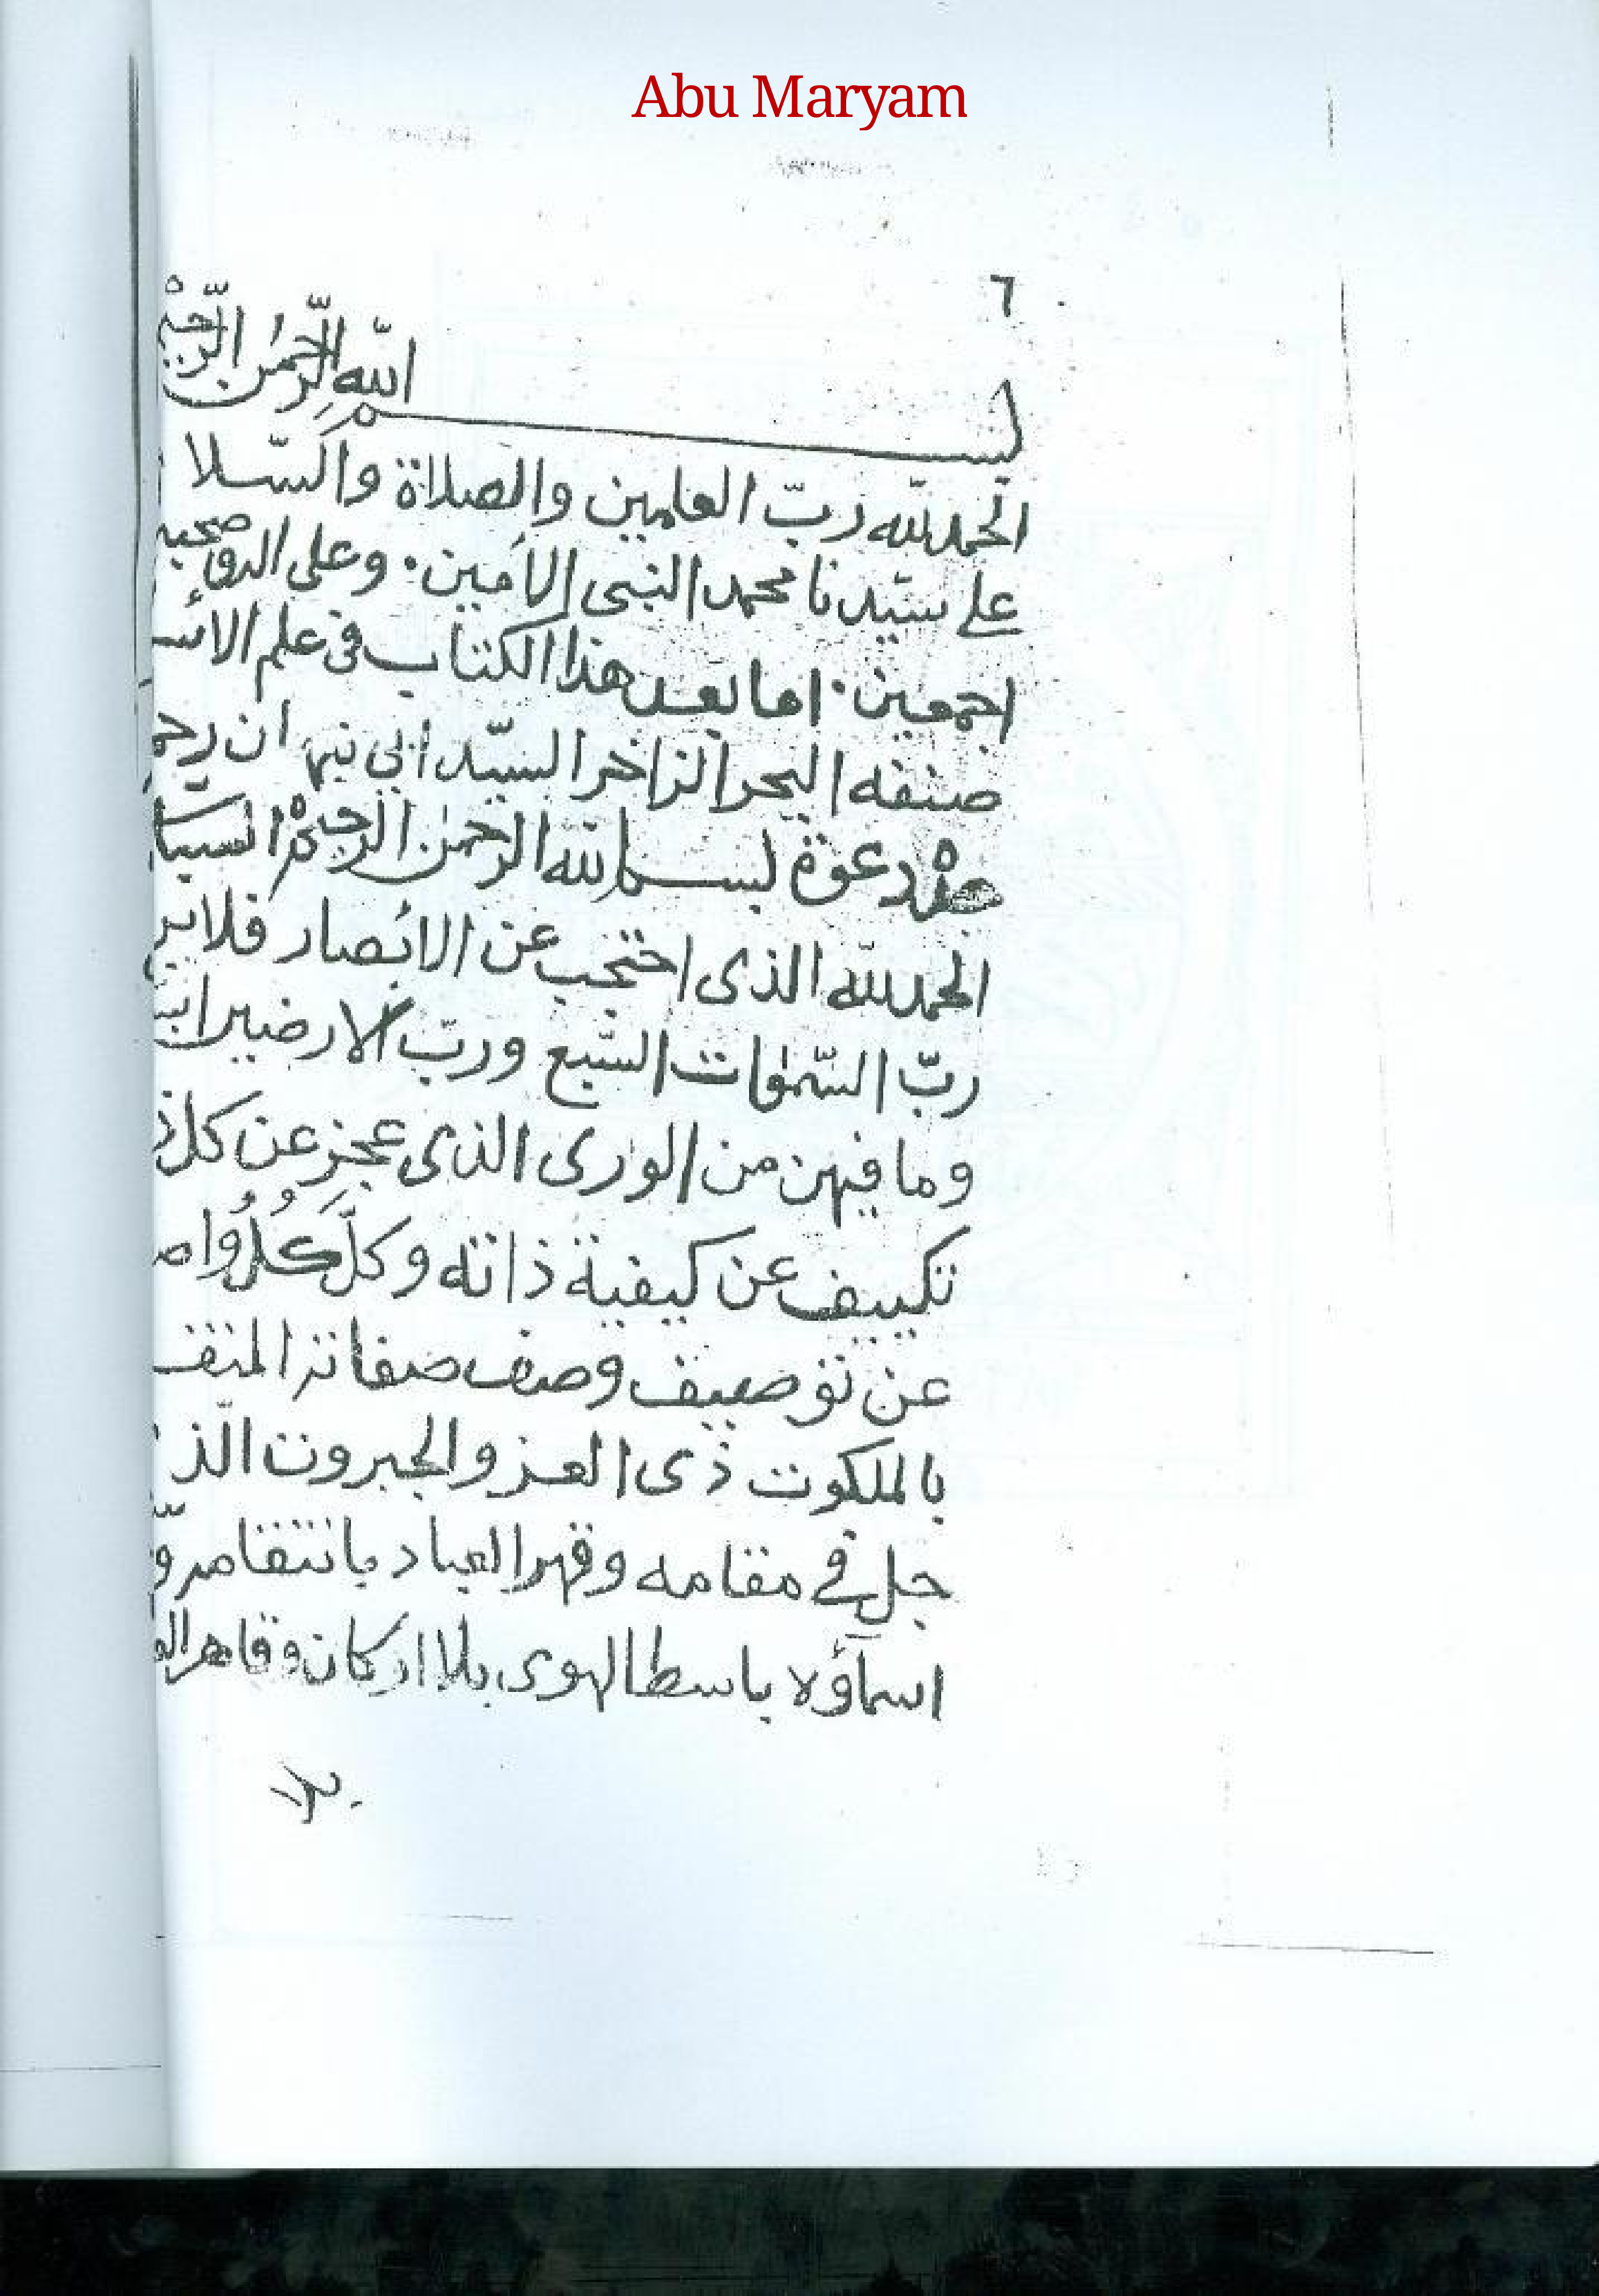 Abu Maryam
٦
بسم الله الرحمٰن الرّحيم
الحمد لله ربّ العلمين والصلاة والسّلا
على سيّدنا محمد النبى الامين. وعلى اله وصحبه
اجمعين. اما بعد هذا الكتاب فى علم الاس
صنفه البحر الزاخر السيّد ابي
دعوة بسم الله الرحمٰن الرحيم
الحمد لله الذى احتجب عن الابصار فلا
ربّ السّمٰوات السّبع وربّ الارضين
وما فيهن من الورى الذى عجز عن كل
تكييف عن كيفية ذاته وكلّ
عن توصيف وصف صفاته
بالملكوت ذى العز والجبروت الّذ
جل فى مقامه وقهر العباد بانتقامه و
اسماؤه باسط الهوى بلا اركان وقاهر